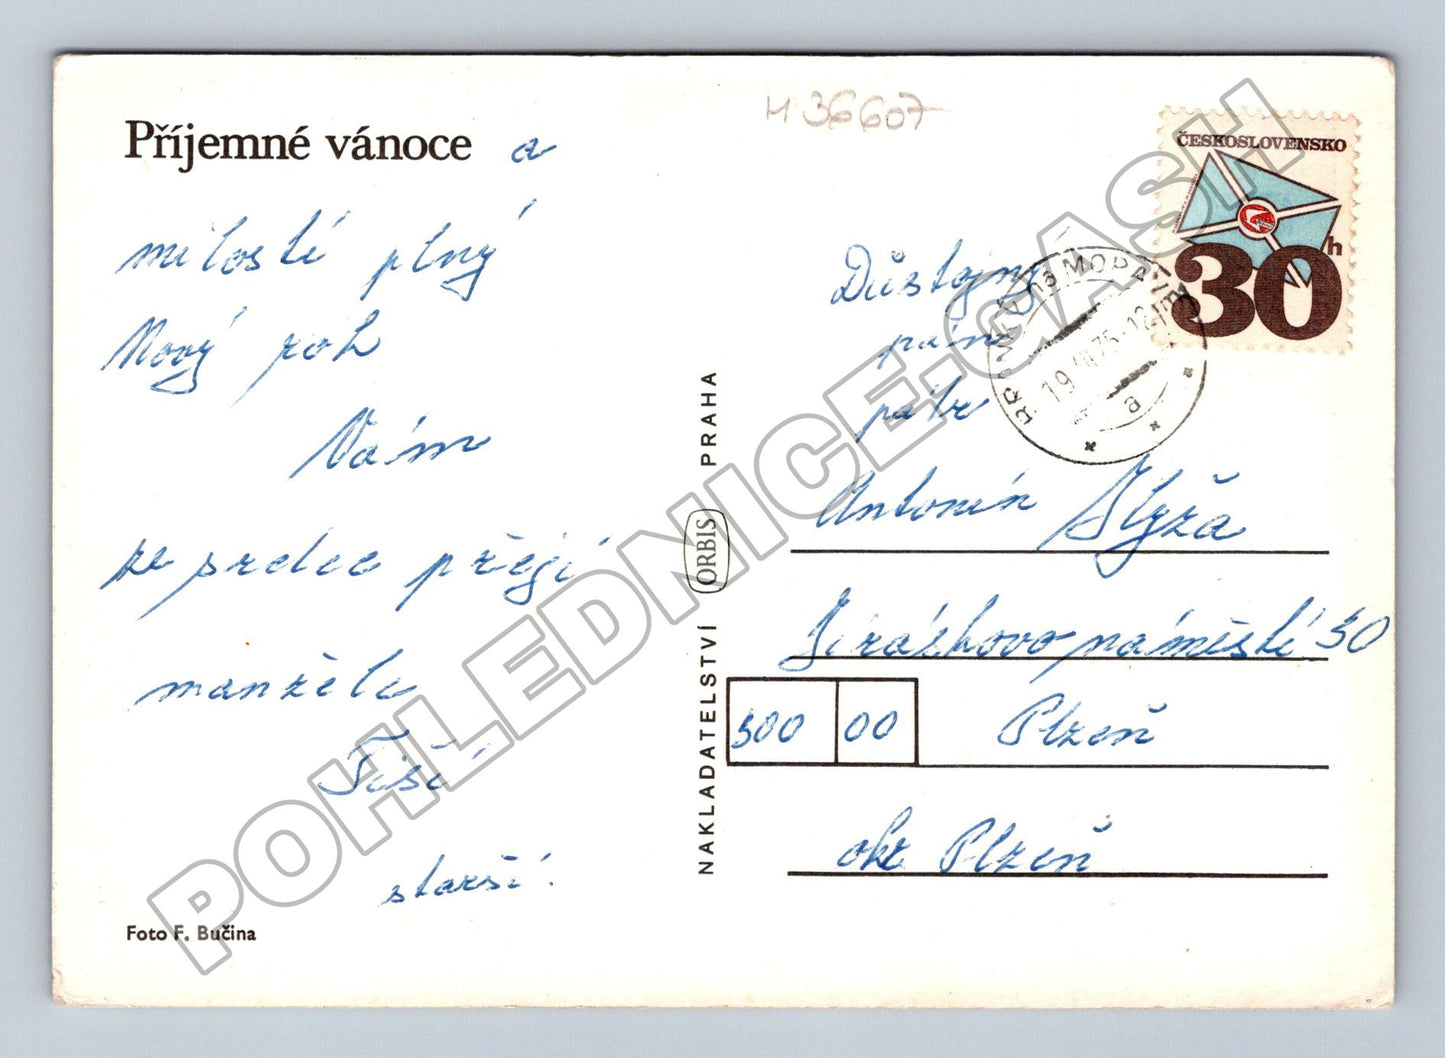 H 36607
Příjemné vánoce a
milostí plný
Nový rok
Vám
ze srdce přejí
manželé
Tiší
starší.
Foto F. Bučina
NAKLADATELSTVÍ ORBIS PRAHA
ČESKOSLOVENSKO
30h
19. 75-12
a
Důstojný
pán
pátr
Antonín Hyža
Jiráskovo náměstí 30
300 00 Plzeň
okr Plzeň
POHLEDNICE.CASH